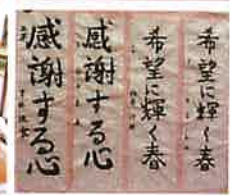 希望に輝く春
希望に輝く春
感謝する心
感謝する心